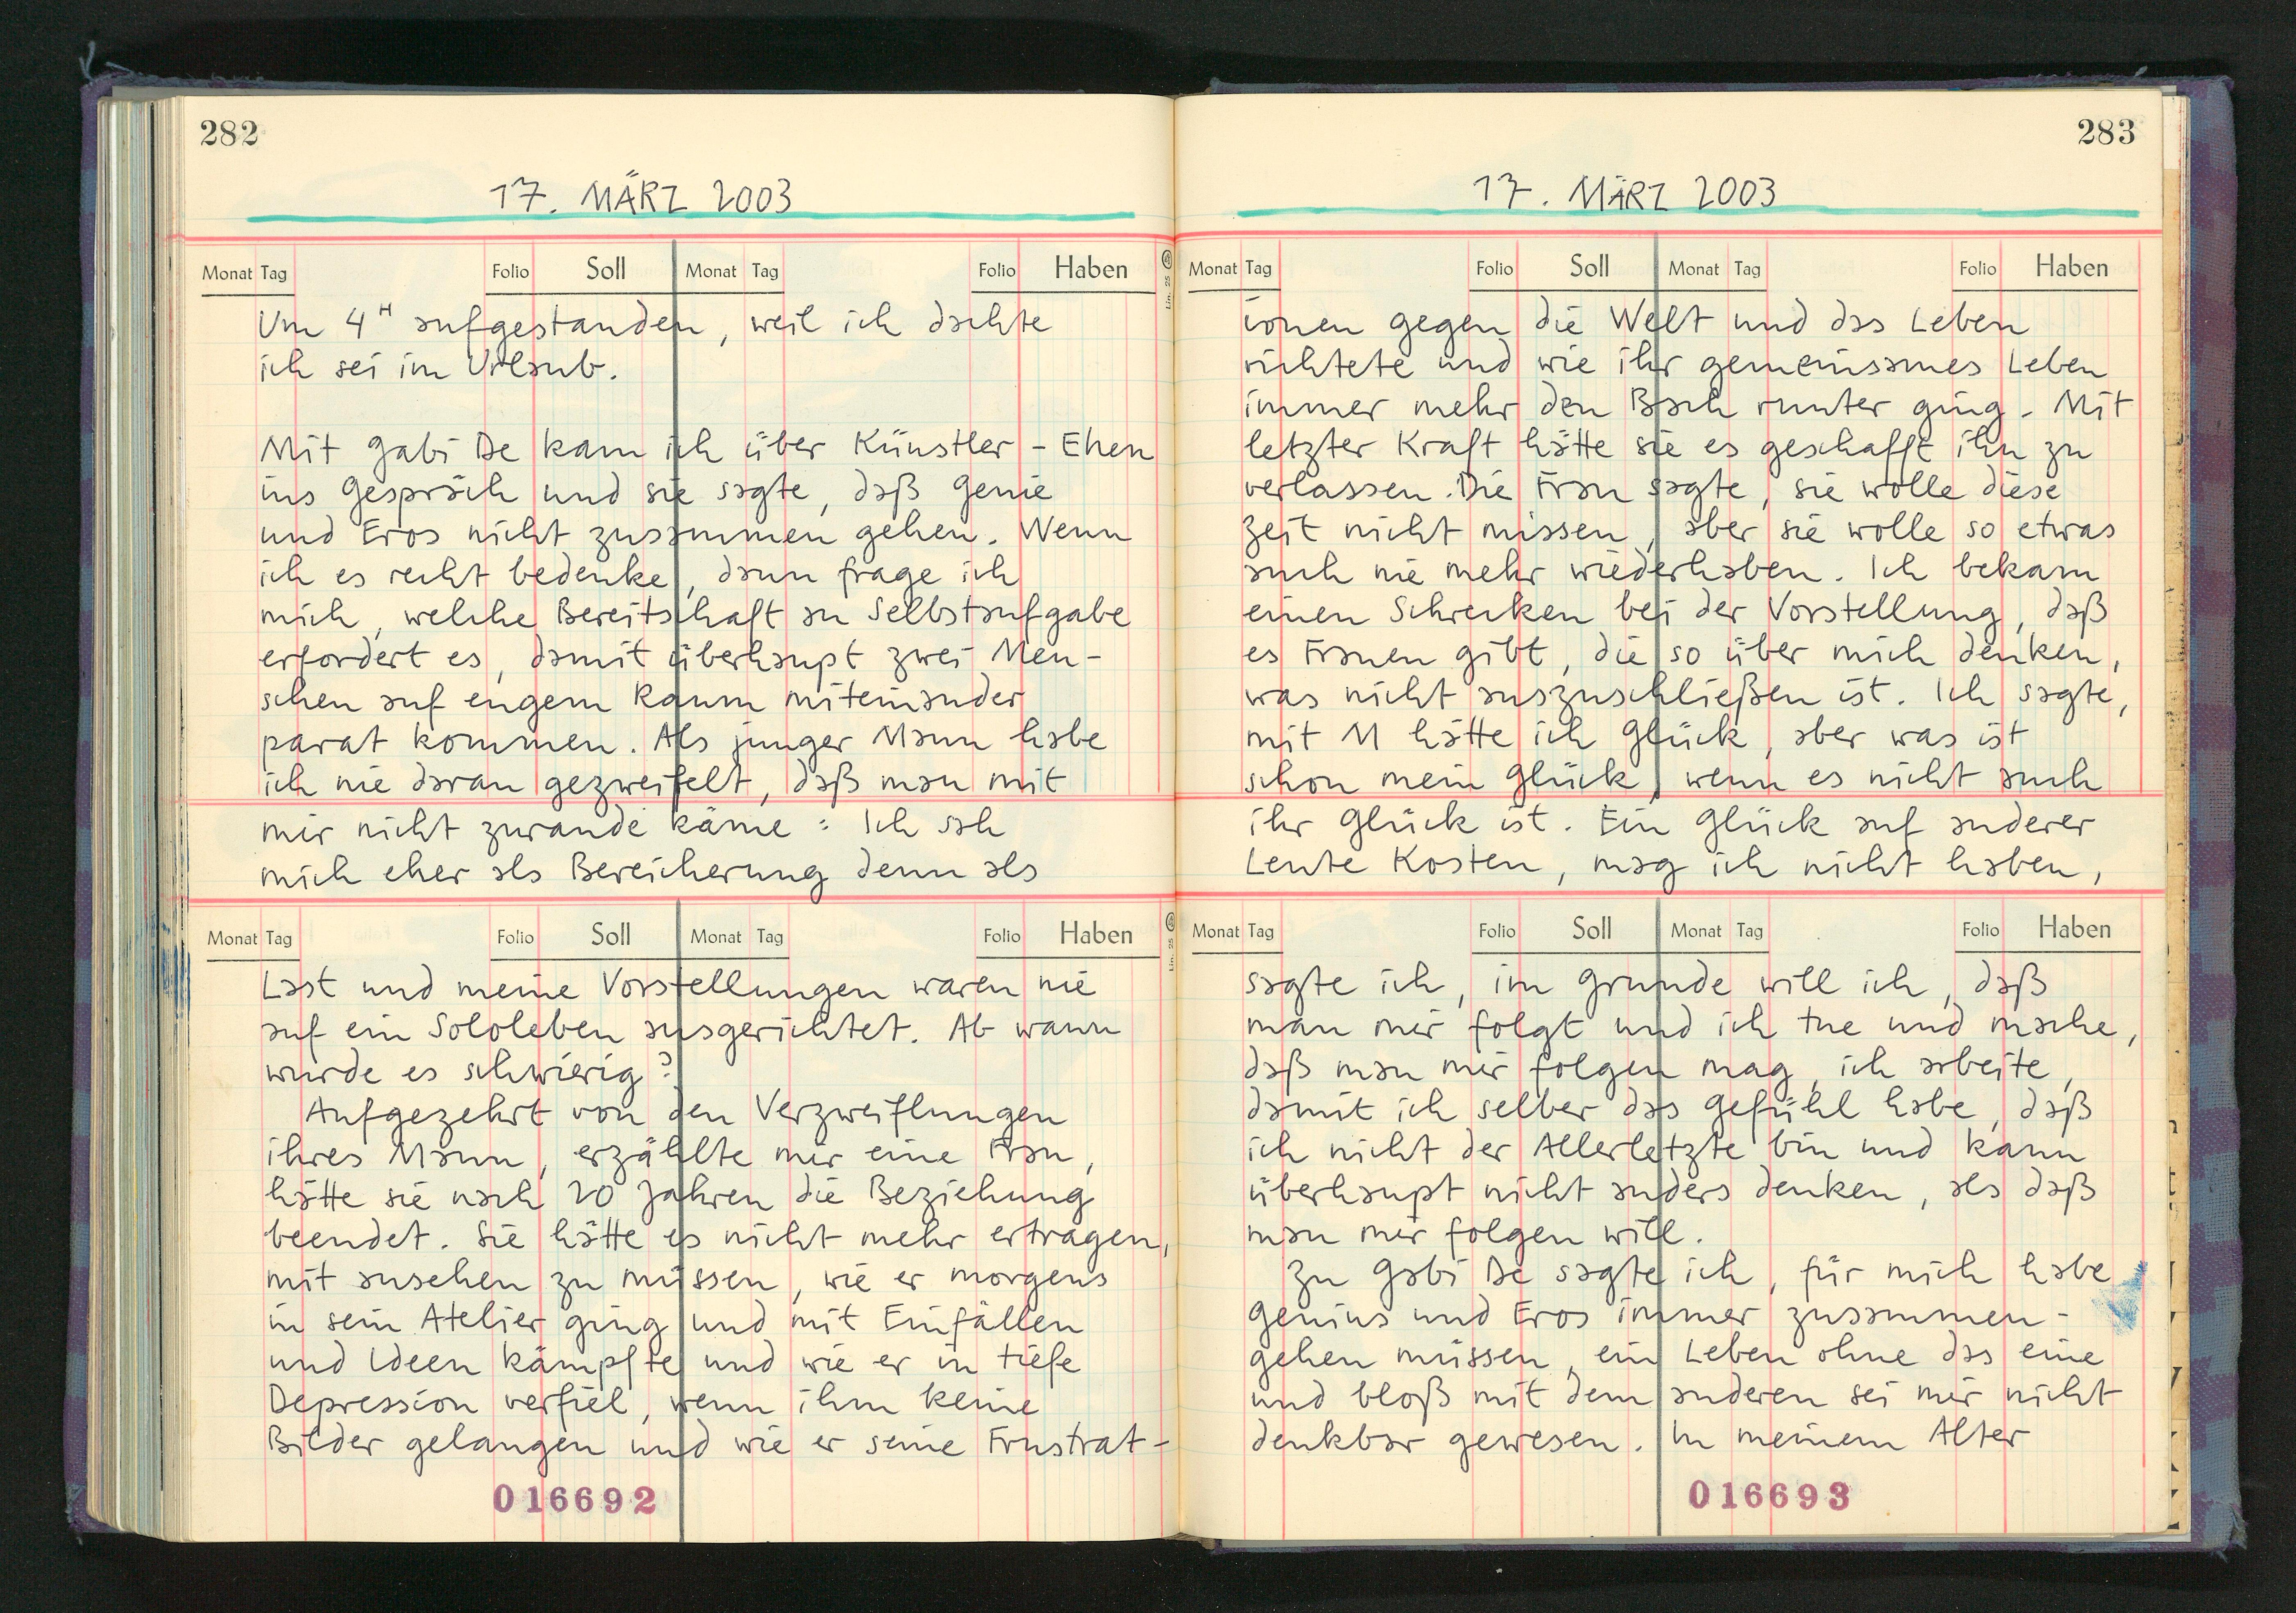 282
17. MÄRZ 2003
Monat Tag Folio Soll Monat Tag Folio Haben
Um 4H aufgestanden, weil ich dachte
ich sei im Urlaub.
Mit Gabi De kam ich über Künstler-Ehen
ins Gespräch und sie sagte, daß Genie
und Eros nicht zusammen gehen. Wenn
ich es recht bedenke, dann frage ich
mich, welche Bereitschaft an Selbstaufgabe
erfordert es, damit überhaupt zwei Men-
schen auf engem Raum miteinander
parat kommen. Als junger Mann habe
ich nie daran gezweifelt, daß man mit
mir nicht zurande käme: Ich sah
mich eher als Bereicherung denn als
Monat Tag Folio Soll Monat Tag Folio Haben
Last und meine Vorstellungen waren nie
auf ein Sololeben ausgerichtet. Ab wann
wurde es schwierig?
Aufgezehrt von den Verzweiflungen
ihres Mann, erzählte mir eine Frau,
hätte sie nach 20 Jahren die Beziehung
beendet. Sie hätte es nicht mehr ertragen,
mit ansehen zu müssen, wie er morgens
in sein Atelier ging und mit Einfällen
und Ideen kämpfte und wie er in tiefe
Depression verfiel, wenn ihm keine
Bilder gelangen und wie er seine Frustrat-
016692
Lin. 25
Lin. 25
283
17. MÄRZ 2003
Monat Tag Folio Soll Monat Tag Folio Haben
ionen gegen die Welt und das Leben
richtete und wie ihr gemeinsames Leben
immer mehr den Bach runter ging. Mit
letzter Kraft hätte sie es geschafft ihn zu
verlassen. Die Frau sagte, sie wolle diese
Zeit nicht missen, aber sie wolle so etwas
auch nie mehr wiederhaben. Ich bekam
einen Schrecken bei der Vorstellung, daß
es Frauen gibt, die so über mich denken,
was nicht auszuschließen ist. Ich sagte,
mit M hätte ich Glück, aber was ist
schon mein Glück, wenn es nicht auch
ihr Glück ist. Ein Glück auf anderer
Leute Kosten, mag ich nicht haben,
Monat Tag Folio Soll Monat Tag Folio Haben
sagte ich, im Grunde will ich, daß
man mir folgt und ich tue und mache,
daß man mir folgen mag, ich arbeite,
damit ich selber das Gefühl habe, daß
ich nicht der Allerletzte bin und kann
überhaupt nicht anders denken, als daß
man mir folgen will.
Zu Gabi De sagte ich, für mich habe
Genius und Eros immer zusammen-
gehen müssen, ein Leben ohne das eine
und bloß mit dem anderen sei mir nicht
denkbar gewesen. In meinem Alter
016693